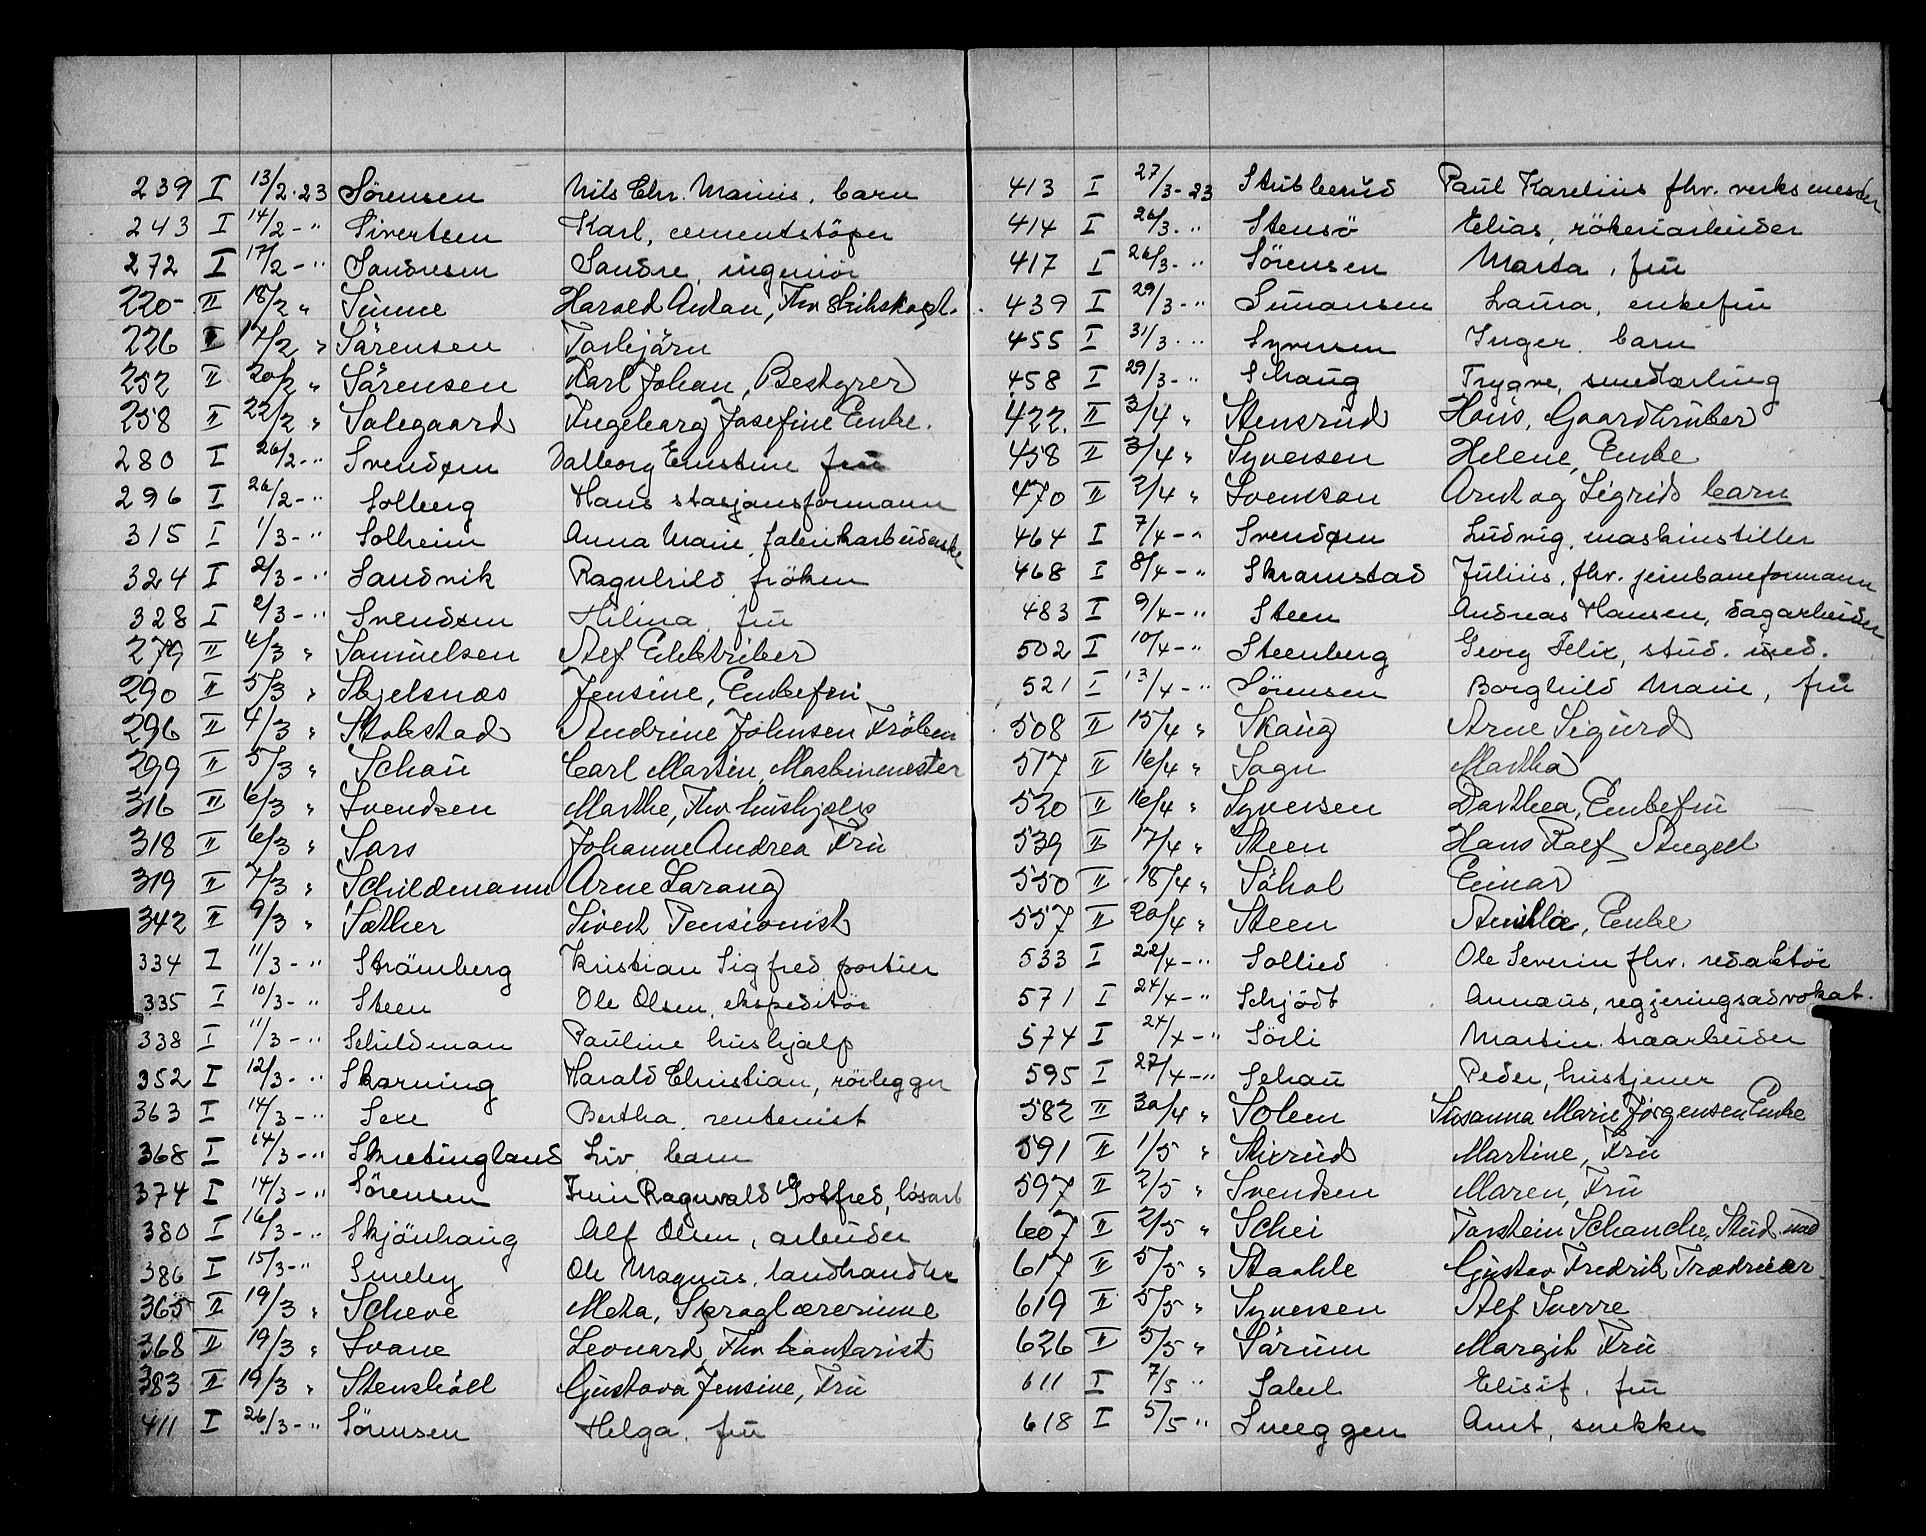 239 I 13/2-23 Sørensen Nils Chr. Marius, barn
243 I 14/2-" Sivertsen Karl, cementstöper
272 I 17/2-" Sandresen Sandre, ingeniör
220- II 18/2 " Sunne Harald Anton, Fhv
226 I 17/2 " Särensen Torbjörn
252 II 20/2 " Särensen Karl Johan, Bestyrer
258 II 22/2 " Solegaard Ingeborg Josefine Enke.
280 I 26/2-" Svendsen Valborg Ernstine fru
296 I 26/2-" Solberg Hans stasjonsformann
315 I 1/3-" Solheim Anna Marie, fabrikarbeiderske
324 I 2/3-" Sandvik Ragnhild fröken
328 I 2/3-" Svendsen Hilina, fru
279 II 4/3 " Samuelsen Alf Elektriker
290 II 5/3 " Skjelsnæs Jensine, Enkefru
296 II 4/3 " Stokstad Andrine Johnsen Fröken
299 II 5/3 " Schau Carl Martin, Maskinmester
316 II 6/3 " Svendsen Marthe, Fhv. hushjelp
318 II 6/3 " Sars Johanne Andrea Fru
319 II 7/3 " Schildemann Arne Sarang
342 II 9/3 " Sæther Sivert Pensionist
334 I 11/3-" Strömberg Kristian Sigfred portier
335 I 10/3-" Steen Ole Olsen, ekspeditör
338 I 11/3-" Schildman Pauline hushjalp
352 I 12/3-" Skarning Harald Christian, rörlegger
363 I 14/3-" Sexe Bertha, rentenist
368 I 14/3-" Skretingland Liv barn
374 I 14/3-" Sørensen Ragnvald Gotfred, løsarb
380 I 16/3-" Skjönhaug Alf Olsen, arbeider
386 I 15/3-" Smeby Ole Magnus, landhandler
365 II 19/3 " Scheve Meta, Språglærerinne
368 II 19/3 " Svane Leonard, Fhv kontorist
383 II 19/3 " Stensköll Gustava Jensine, Fru
411 I 26/3-" Sörensen Helga, fru
413 I 27/3-23 Stubberud Paul Karelius fhv. verksmester
414 I 26/3-" Stensö Elias, rökeriarbeider
417 I 26/3-" Sörensen Marta, fru
439 I 29/3-" Simonsen Laura, enkefru
455 I 31/3-" Syversen Inger, barn
458 I 29/3-" Schaug Trygve, smedlærling
422. II 3/4 " Stensrud Hans, Gaardbruker
458 II 3/4 " Syversen Helene, Enke
470 II 2/4 " Svendsen Arnt og Sigrid barn
464 I 7/4-" Svendsen Ludvig, maskinstiller
468 I 8/4-" Skramstad Julius, fhv. jernbaneformann
483 I 9/4-" Steen Andreas Hansen, sagarbeider
502 I 10/4-" Steenberg Georg Felix, stud. med.
521 I 13/4-" Sørensen Borghild Marie, fru
508 II 15/4 " Skaug Arne Sigurd
517 II 16/4 " Sogn Martha
520 II 16/4 " Syversen Dorthea, Enkefru
539 II 17/4 " Steen Hans Ralf Angell
550 II 18/4 " Söhol Einar
557 II 20/4 " Steen Enke
533 I 22/4-" Sollied Ole Severin fhv. redaktör
571 I 24/4-" Schjödt Annæus, regjeringsadvokat.
574 I 24/4-" Sörli Martin træarbeider
595 I 27/4-" Schau Peder, hustjener
582 II 30/4 " Solem Susanna Marie Jörgensen Enke
591 II 1/5 " Stixrud Martine, Fru
597 II 2/5 " Svendsen Maren, Fru
607 II 2/5 " Schei Torstein Schanche, Stud. med
617 II 5/5 " Staahle Gustav Fredrik Trædreier
619 II 5/5 " Syversen Alf Sverre
626 II 5/5 " Sörum Margit Fru
611 I 7/5 " Sahl Elisif, fru
618 I 5/5 " Sveeggen Arnt, snekker